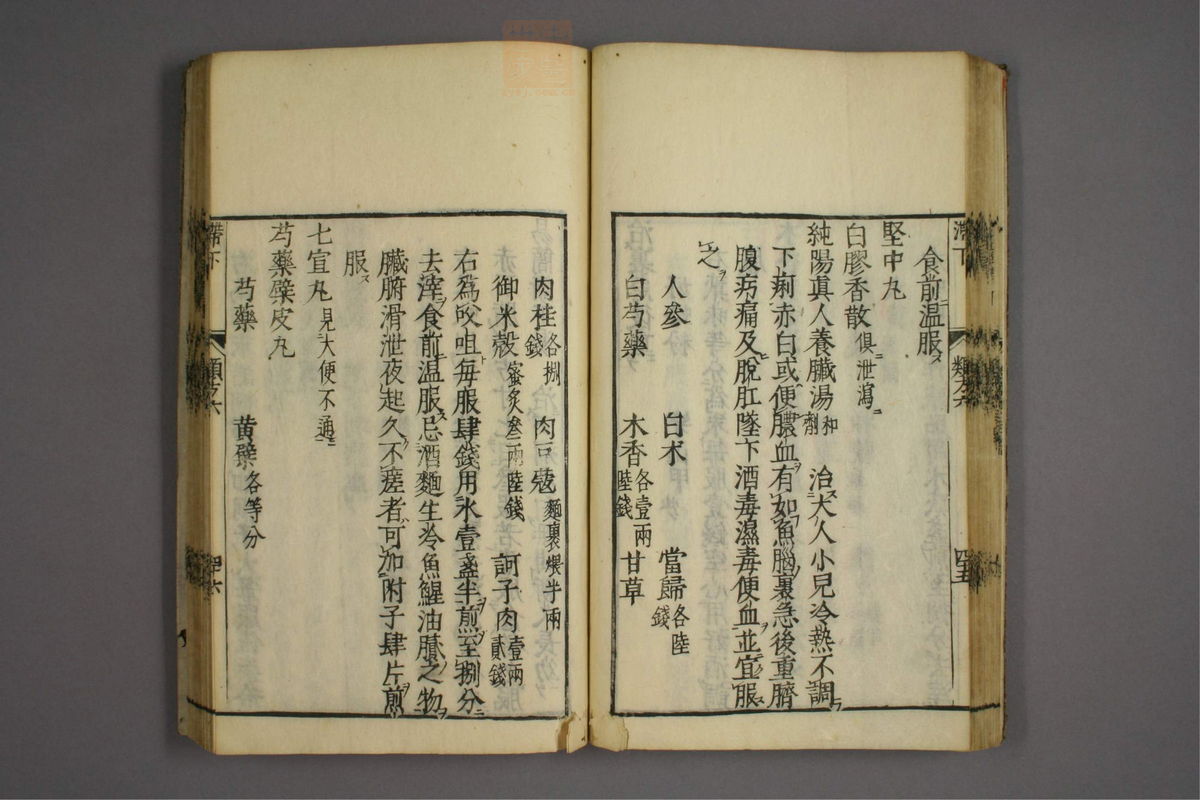 食前温服
堅中丸
白膠香散 俱泄瀉
純陽眞人養臟湯 和劑 治大人小兒冷熱不調
下痢赤白或便膿血有如魚腦裏急後重臍
腹㽲痛及脫肛墜下酒毒濕毒便血並宜服
之
人參 白朮 當歸各陸錢
白芍藥 木香各壹兩陸錢 甘草
肉桂各捌錢 肉豆蔻麵裹煨半兩
御米殼蜜炙叁兩陸錢 訶子肉壹兩貳錢
右爲㕮咀每服肆錢用水壹盞半煎至捌分
去滓食前温服忌酒麵生冷魚鯹油膩之物
臟腑滑泄夜起久不瘥者可加附子肆片煎
服
七宜丸見大便不通
芍藥蘗皮丸
芍藥 黄蘗各等分